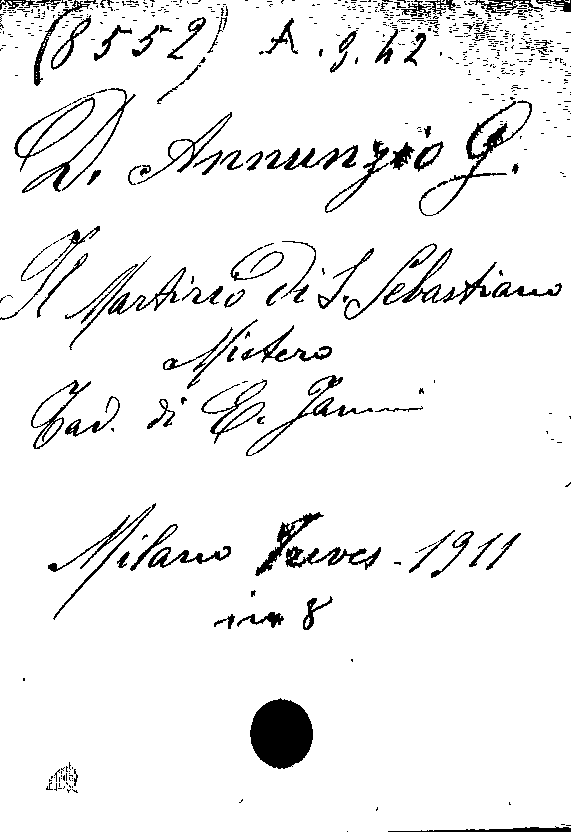 (8552) A.9.42.
D. Annunzio G.
Il Martirio di S. Sebastiano
Mistero
Trad. di E. Janni
Milano Treves - 1911
in 8